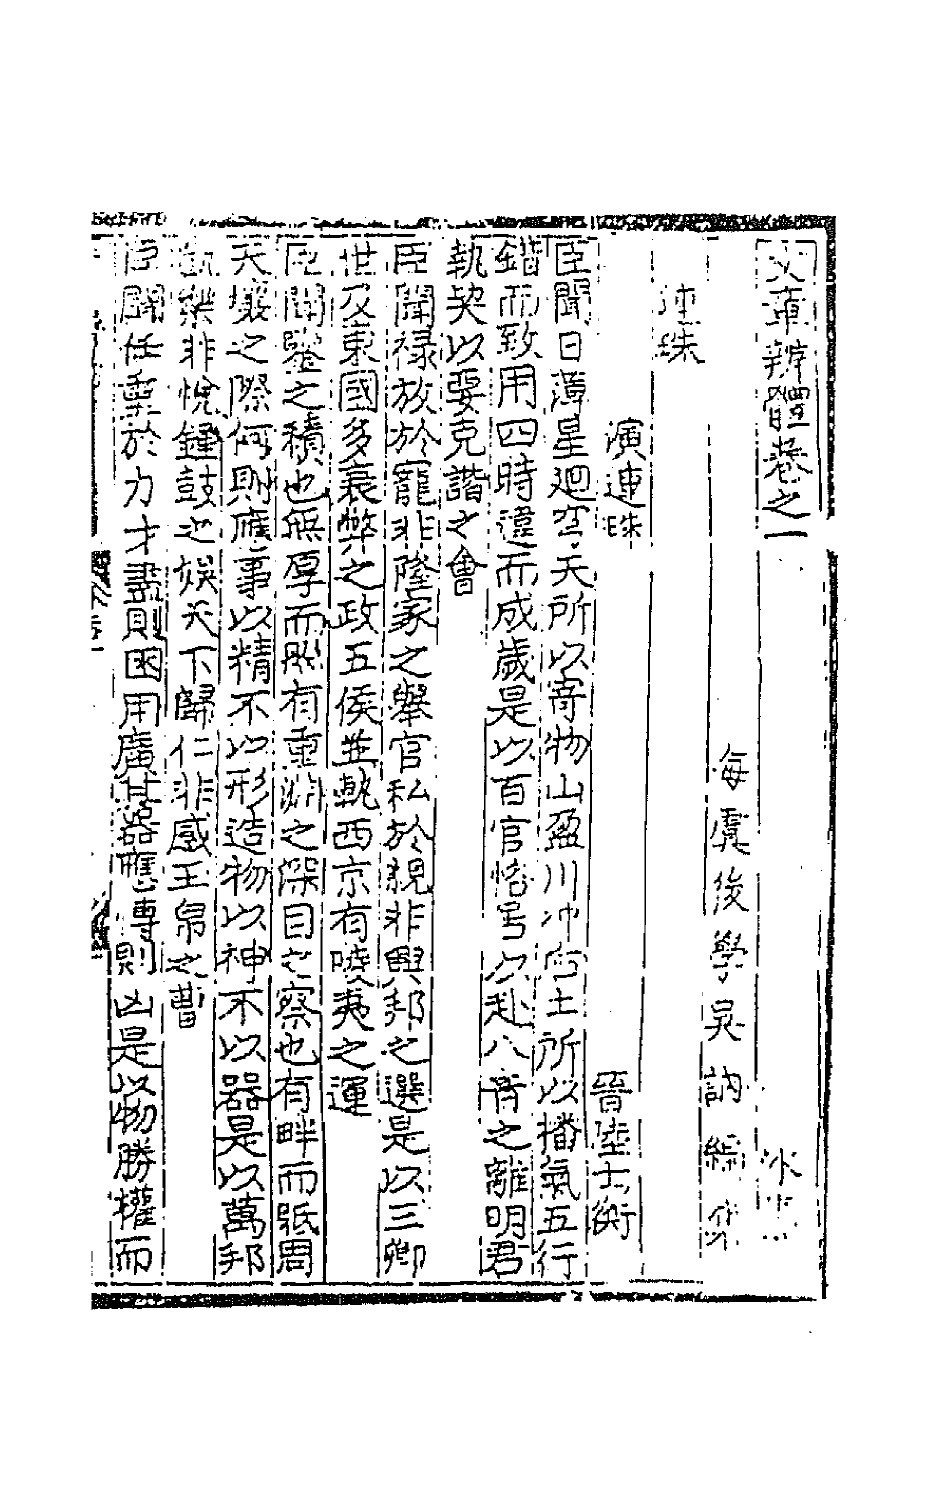 文章辨體卷之一　外集
海虞後學吴訥編集
連珠
演連珠　晉陸士衡
臣聞日薄星廻穹天所以寄物山盈川冲后土所以播氣五行
錯而致用四時違而成歲是以百官恪居以赴八音之離明君
執契以要克諧之會
臣聞禄放於寵非隆家之舉官私於親非興邦之選是以三卿
世及東國多衰弊之政五侯並軌西京有陵夷之運
臣聞鑒之積也無厚而照有重淵之深目之察也有畔而眡周
天壤之際何則應事以精不以形造物以神不以器是以萬邦
凱樂非悅鍾鼓之娱天下歸仁非感玉帛之曹
臣聞任重於力才盡則困用廣其器應博則凶是以物勝權而